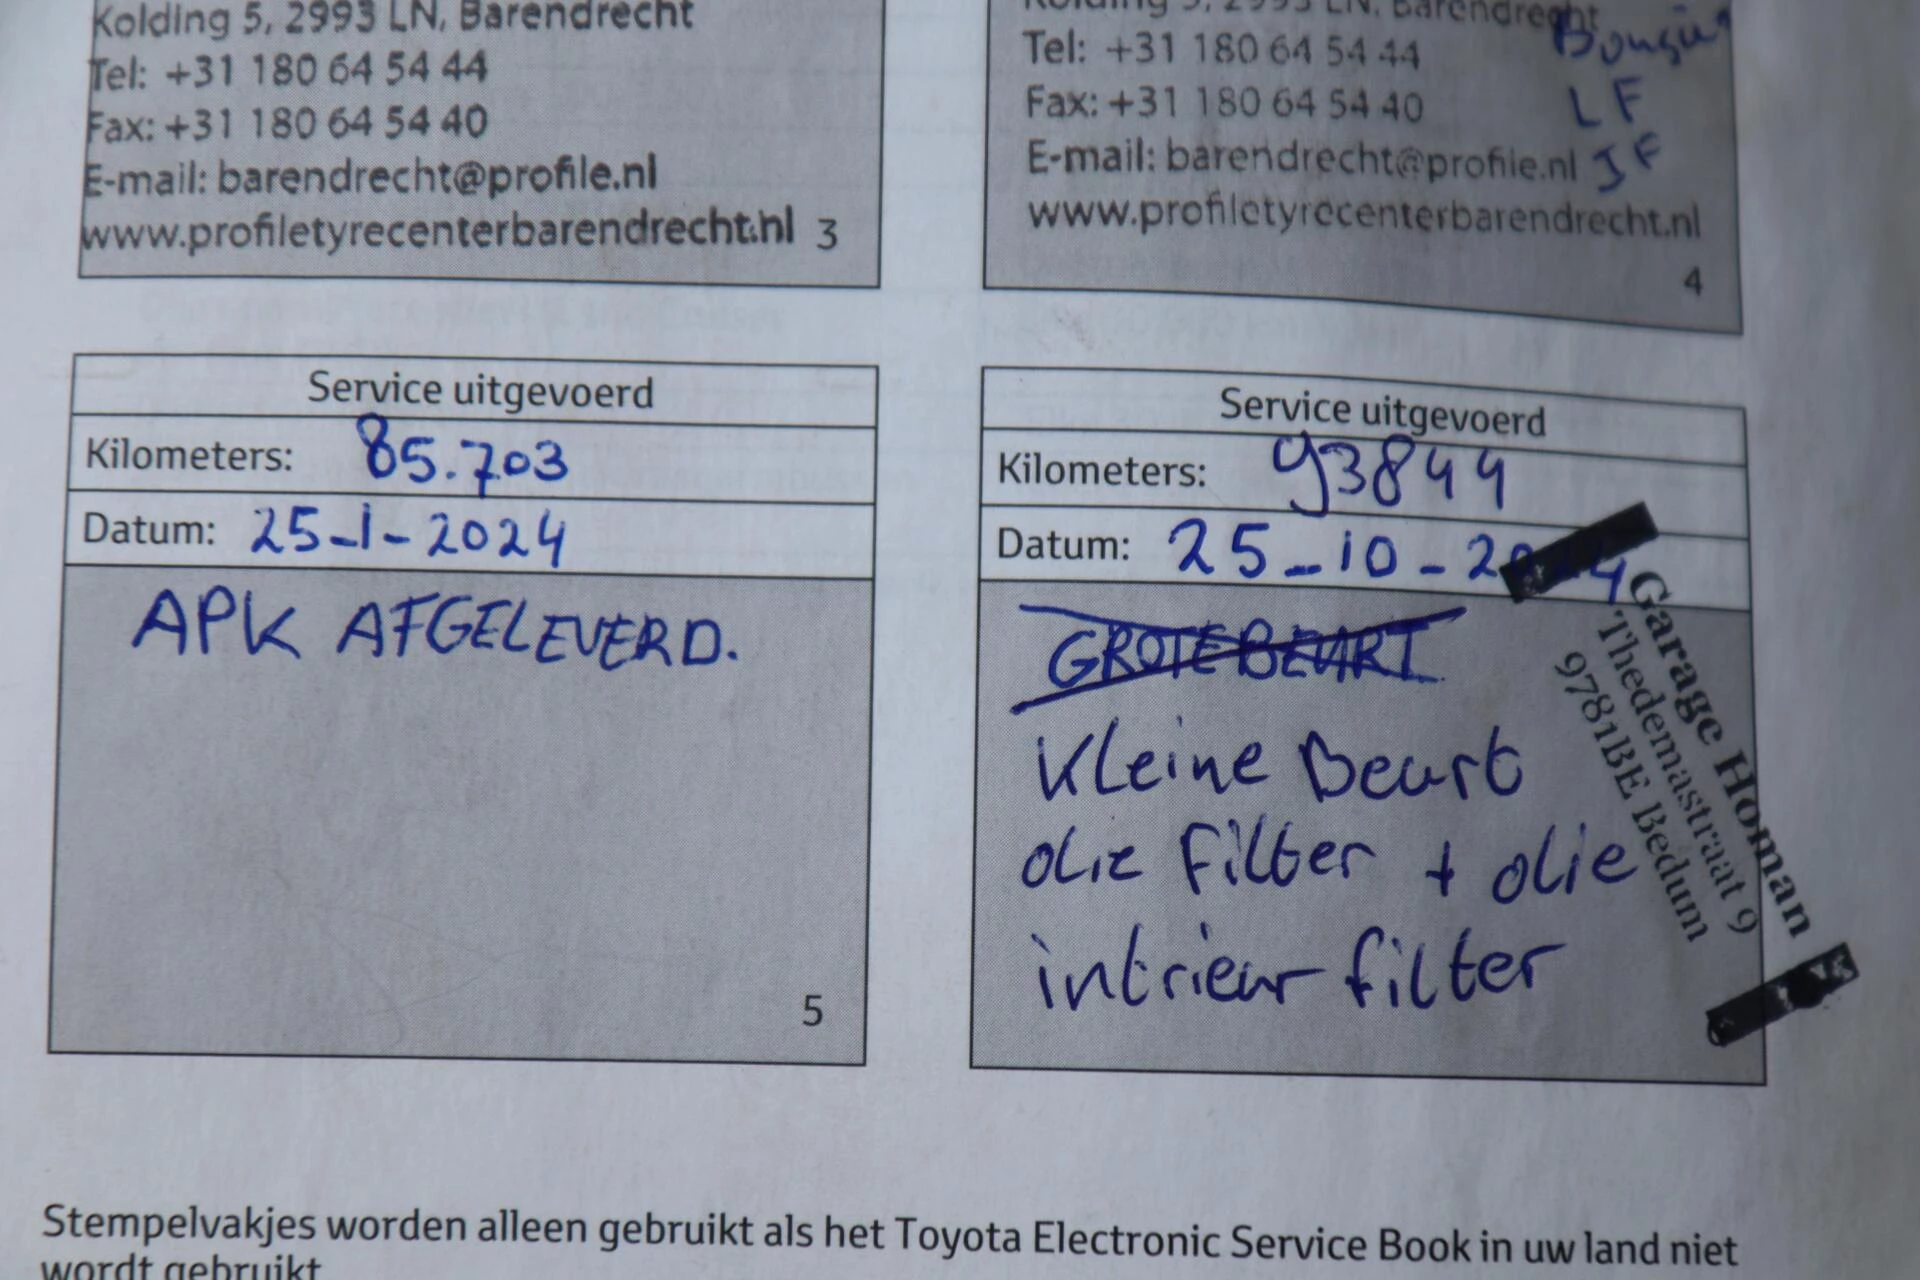 Kolding 5, 2993 LN, Barendrecht
Tel: +31 180 64 54 44
Fax: +31 180 64 54 40
E-mail: barendrecht@profile.nl
www.profiletyrecenterbarendrecht.nl 3
Kolding 5, 2993 LN, Barendrecht
Tel: +31 180 64 54 44
Fax: +31 180 64 54 40
E-mail: barendrecht@profile.nl
www.profiletyrecenterbarendrecht.nl
4
LF
Service uitgevoerd
Kilometers: 85.703
Datum: 25-1-2024
APK AFGELEVERD.
5
Service uitgevoerd
Kilometers: 93844
Datum: 25-10-2024
GROTE BEURT
Kleine Beurt
olie Filter + olie
intrieur filter
Garage Homan
Thedemastraat 9
9781BE Bedum
Stempelvakjes worden alleen gebruikt als het Toyota Electronic Service Book in uw land niet
wordt gebruikt